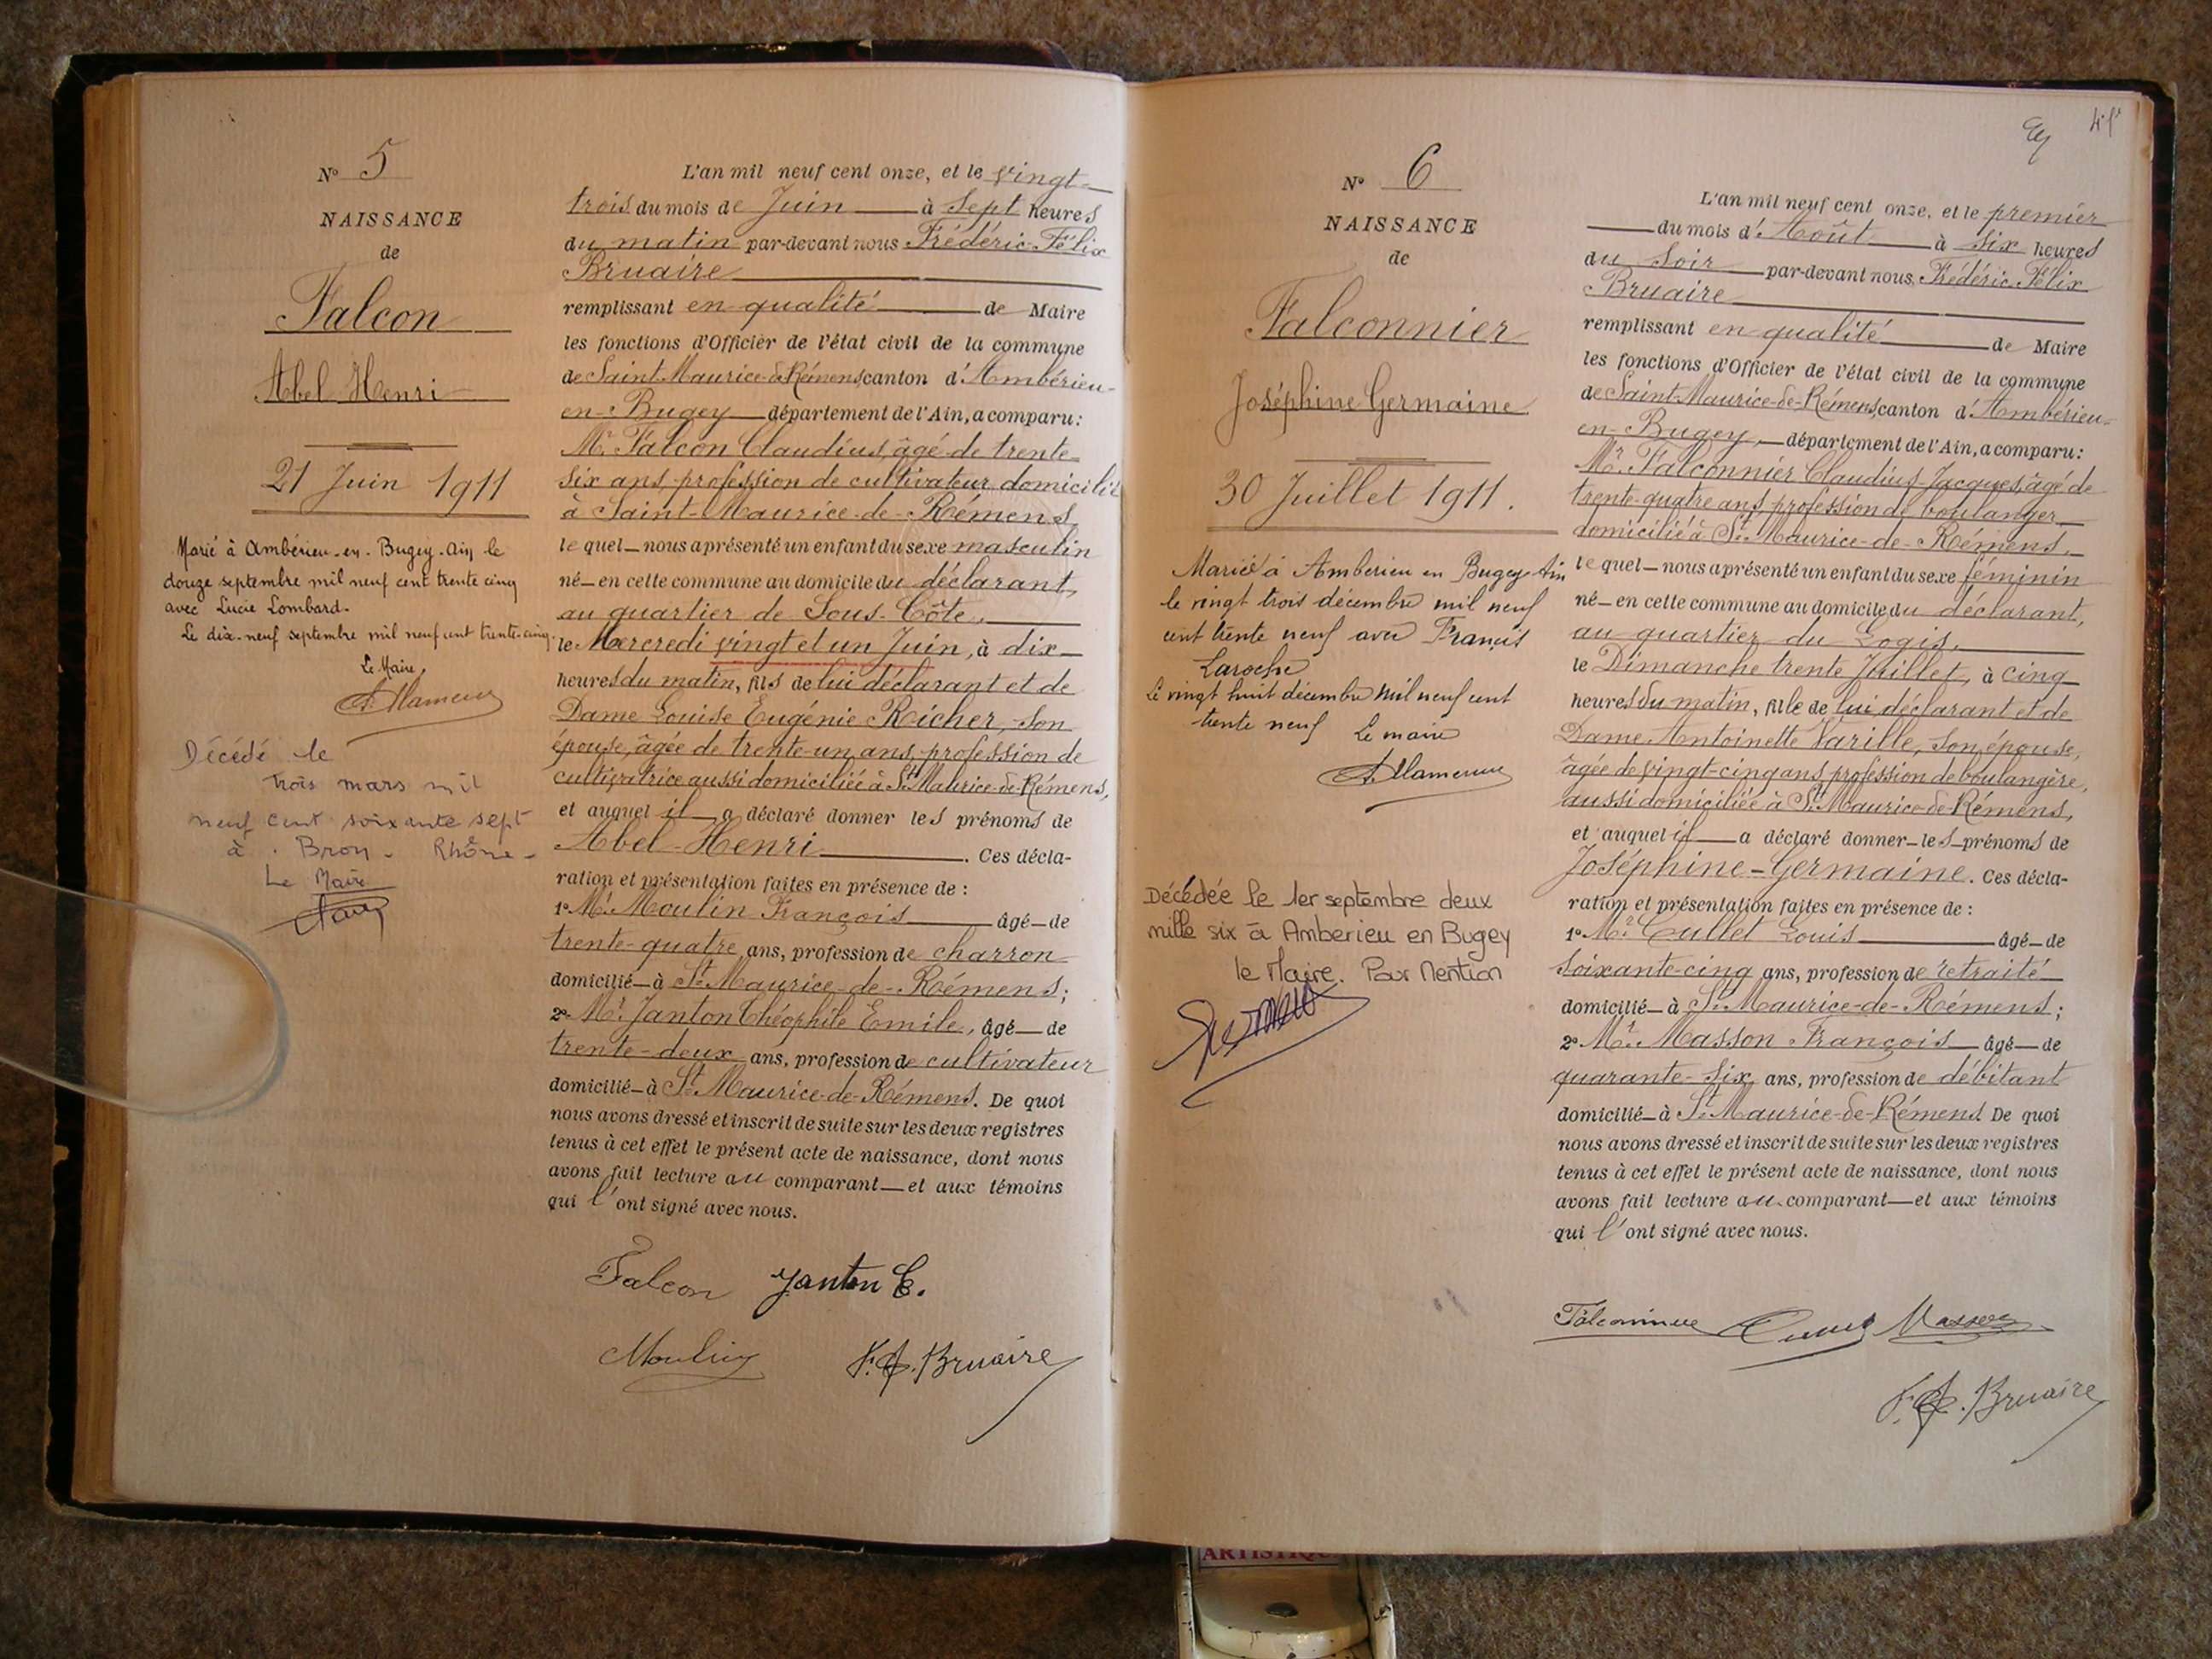 N° 5
NAISSANCE
de
Falcon
Abel Henri
21 Juin 1911
Marié à Ambérieu-en-Bugey-Ain le
douze septembre mil neuf cent trente cinq
avec Lucie Lombard.
Le dix-neuf septembre mil neuf cent trente-cinq.
Le Maire,
Décédé le
trois mars mil
neuf cent soixante sept
à Bron - Rhône -
Le Maire
L'an mil neuf cent onze, et le vingt-
trois du mois de Juin à Sept heures
du matin par-devant nous Frédéric-Félix
Bruaire
remplissant en qualité de Maire
les fonctions d'Officier de l'état civil de la commune
de Saint-Maurice-de-Rémens canton d'Ambérieu-
en-Bugey département de l'Ain, a comparu:
Mr. Falcon Claudius, âgé de trente-
six ans, profession de cultivateur, domicilié
à Saint-Maurice-de-Rémens,
lequel nous a présenté un enfant du sexe masculin
né en cette commune au domicile du déclarant,
au quartier de Sous-Côte,
le Mercredi vingt et un Juin, à dix
heures du matin, fils de lui déclarant et de
Dame Louise Eugénie Richer, son
épouse, âgée de trente-un ans, profession de
cultivatrice aussi domiciliée à St Maurice-de-Rémens,
et auquel il a déclaré donner les prénoms de
Abel-Henri. Ces décla-
ration et présentation faites en présence de :
1° Mr. Moulin François âgé de
trente-quatre ans, profession de charron
domicilié à St. Maurice-de-Rémens;
2° Mr. Janton Théophile Emile, âgé de
trente-deux ans, profession de cultivateur
domicilié à St. Maurice-de-Rémens. De quoi
nous avons dressé et inscrit de suite sur les deux registres
tenus à cet effet le présent acte de naissance, dont nous
avons fait lecture au comparant et aux témoins
qui l'ont signé avec nous.
Falcon Janton E.
Moulin F. F. Bruaire
N° 6
NAISSANCE
de
Falconnier
Joséphine Germaine
30 Juillet 1911.
Mariée à Amberieu en Bugey Ain
le vingt trois décembre mil neuf
cent trente neuf avec Francis
Laroche
Le vingt huit décembre mil neuf cent
trente neuf Le maire
Décédée le 1er septembre deux
mille six à Amberieu en Bugey
le Maire. Pour Mention
L'an mil neuf cent onze, et le premier
du mois d'Août à six heures
du soir par-devant nous, Frédéric Félix
Bruaire
remplissant en qualité de Maire
les fonctions d'Officier de l'état civil de la commune
de Saint-Maurice-de-Rémens, canton d'Ambérieu-
en-Bugey, département de l'Ain, a comparu:
Mr. Falconnier Claudius-Jacques, âgé de
trente-quatre ans, profession de boulanger,
domicilié à St. Maurice-de-Rémens,
lequel nous a présenté un enfant du sexe féminin
né en cette commune au domicile du déclarant,
au quartier du Logis,
le Dimanche trente Juillet, à cinq
heures du matin, fille de lui déclarant et de
Dame Antoinette Varille, son épouse,
âgée de vingt-cinq ans, profession de boulangère,
aussi domiciliée à St. Maurice-de-Rémens,
et auquel il a déclaré donner les prénoms de
Joséphine-Germaine. Ces décla-
ration et présentation faites en présence de :
1° Mr. Cullet Louis âgé de
soixante-cinq ans, profession de retraité
domicilié à St. Maurice-de-Rémens;
2° Mr. Masson François âgé de
quarante-six ans, profession de débitant
domicilié à St. Maurice-de-Rémens De quoi
nous avons dressé et inscrit de suite sur les deux registres
tenus à cet effet le présent acte de naissance, dont nous
avons fait lecture au comparant et aux témoins
qui l'ont signé avec nous.
Falconnier Cullet Masson
F. F. Bruaire
ARTISTIQUE